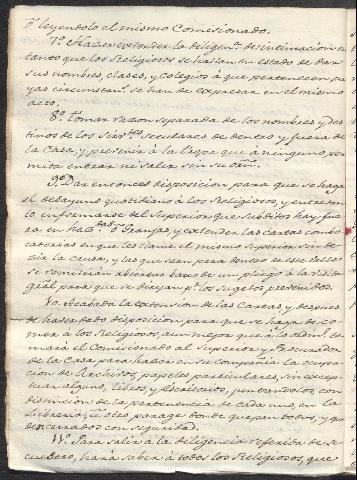 ó leyendolo el mismo Comisionado.
7.º Hazer extender la diligen.ª de intimacion en
tanto que los Religiosos se hallan en estado de dar
sus nombres, clases, y Colegios à que pertenecen, cu
yas circunstan.s se han de expresar en el mismo
acto.
8.º Tomar razon separada de los nombres y des
tinos de los sirv.tes seculares de dentro y fuera de
la Casa, y prevenir à la tropa que à ninguno per
mita entrar ni salir sin su orn.
9.º Dar entonces disposicion para que se haga
el desayuno quotidiano à los Religiosos, y entretan
to informarse del Superior que subditos hay fue
ra en ó Granjas, y extender las cartas combo
catorias en que les llame el mismo Superior sin de
zir la causa, y las que sean para dentro de este Valle
se remitirán abiertas baxo de un pliego à la
para que se dirijan p.r los sugetos prevenidos.
10. Acabada la extension de las Cartas, y despues
de haber dado disposicion para que se haga de co
mer à los Religiosos, aun mejor que à lo
mará el Comisionado al Superior y Procurador
de la Casa para hacer en su compañia la ocupa
cion de Archivos, papeles particulares, sin excep
tuar alguno, Libros, y Escritorios, juntandolos, con
distincion de la pertenencia de cada uno, en la
Libreria, ù otro parage donde quepan todos, y que
den cerrados con seguridad.
11.º Para salir à la diligencia referida de se
cuestro, hará saber à todos los Religiosos, que